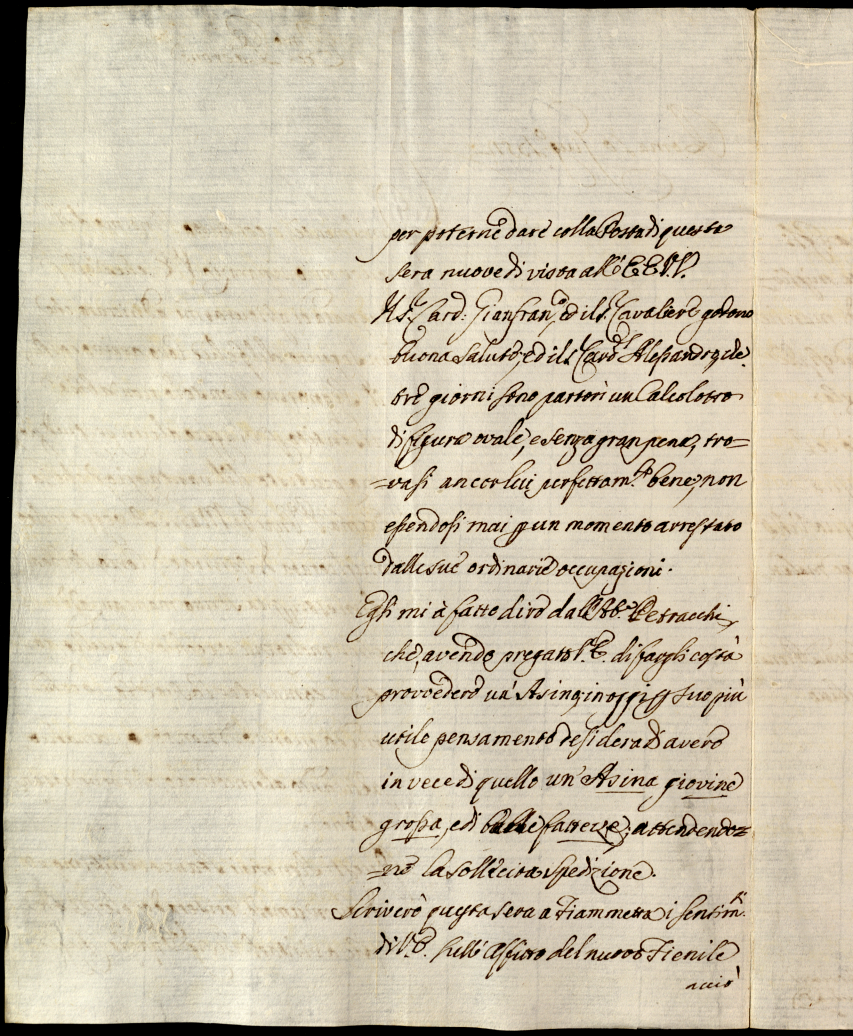 per poterne dare colla Posta di questa
sera nuove di vista all' EE. VV.
Il S.r Card: Gianfran.co, ed il S.r Cavaliere godono
buona salute, ed il S.r Card.l Alessandro, che
tre giorni sono partorì un Calcoletto
di figura ovale, e senza gran pena, tro=
=vasi ancor lui perfettam.te bene, non
essendosi mai p un momento arrestato
dalle sue ordinarie occupazioni.
Egli mi à fatto dire dall'Ab.e Petracchi,
che, avendo pregato V.E. di fargli costà
provvedere un' Asino, in oggi p suo più
utile pensamento desidera di avere
in vece di quello un' Asina giovine
grossa, e di belle fattezze; attendendo=
=ne la sollecita spedizione.
Scriverò questa sera a Fiammetta i sentim.ti
di V.E. sull' Affitto del nuovo Fienile
acciò